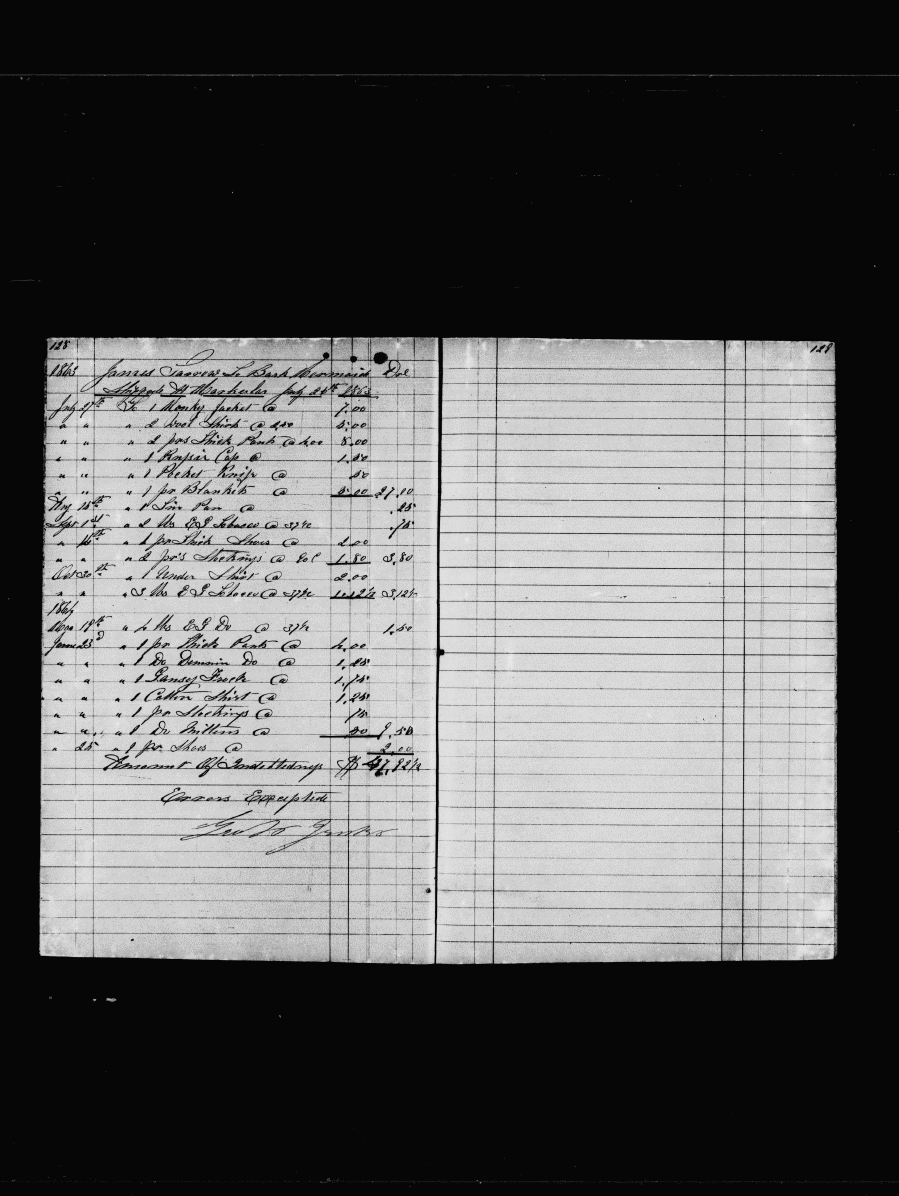 128
128
1863 James To Bark Mermaid Dr
Shipped At July 26th 1863
July 27th To 1 Monky Jacket @ 7.00
" " " 2 Wool Shirts @ 2.50 5.00
" " " 2 prs Thick Pants @ 4.00 8.00
" " " 1 Cap @ 1.50
" " " 1 Pocket Knife @ 50
" " " 1 pr Blankets @ 5.00 27.00
Aug 15th " 1 Tin Pan @ .25
Sept 1st " 2 lbs E G Tobacco @ 37½ .75
" 14th " 1 pr Thick Shoes @ 2.00
" " " 2 pr's Stockings @ 90c 1.80 3.80
Oct 30th " 1 Under Shirt @ 2.00
" " " 3 lbs E G Tobacco @ 37½ 1.12½ 3.12½
1864
19th " 4 lbs E G Do @ 37½ 1.50
June 23d " 1 pr Thick Pants @ 4.00
" " " 1 Do Dennin Do @ 1.25
" " " 1 Gansey Frock @ 1.75
" " " 1 Cotton Shirt @ 1.25
" " " 1 pr Stockings @ 75
" " " 1 Do Mittens @ 50 9.50
" 25 " 1 pr Shoes @ 2.00
Amount Of Indettedness $ 47.92½
Errors Excepted
Geo Jenks